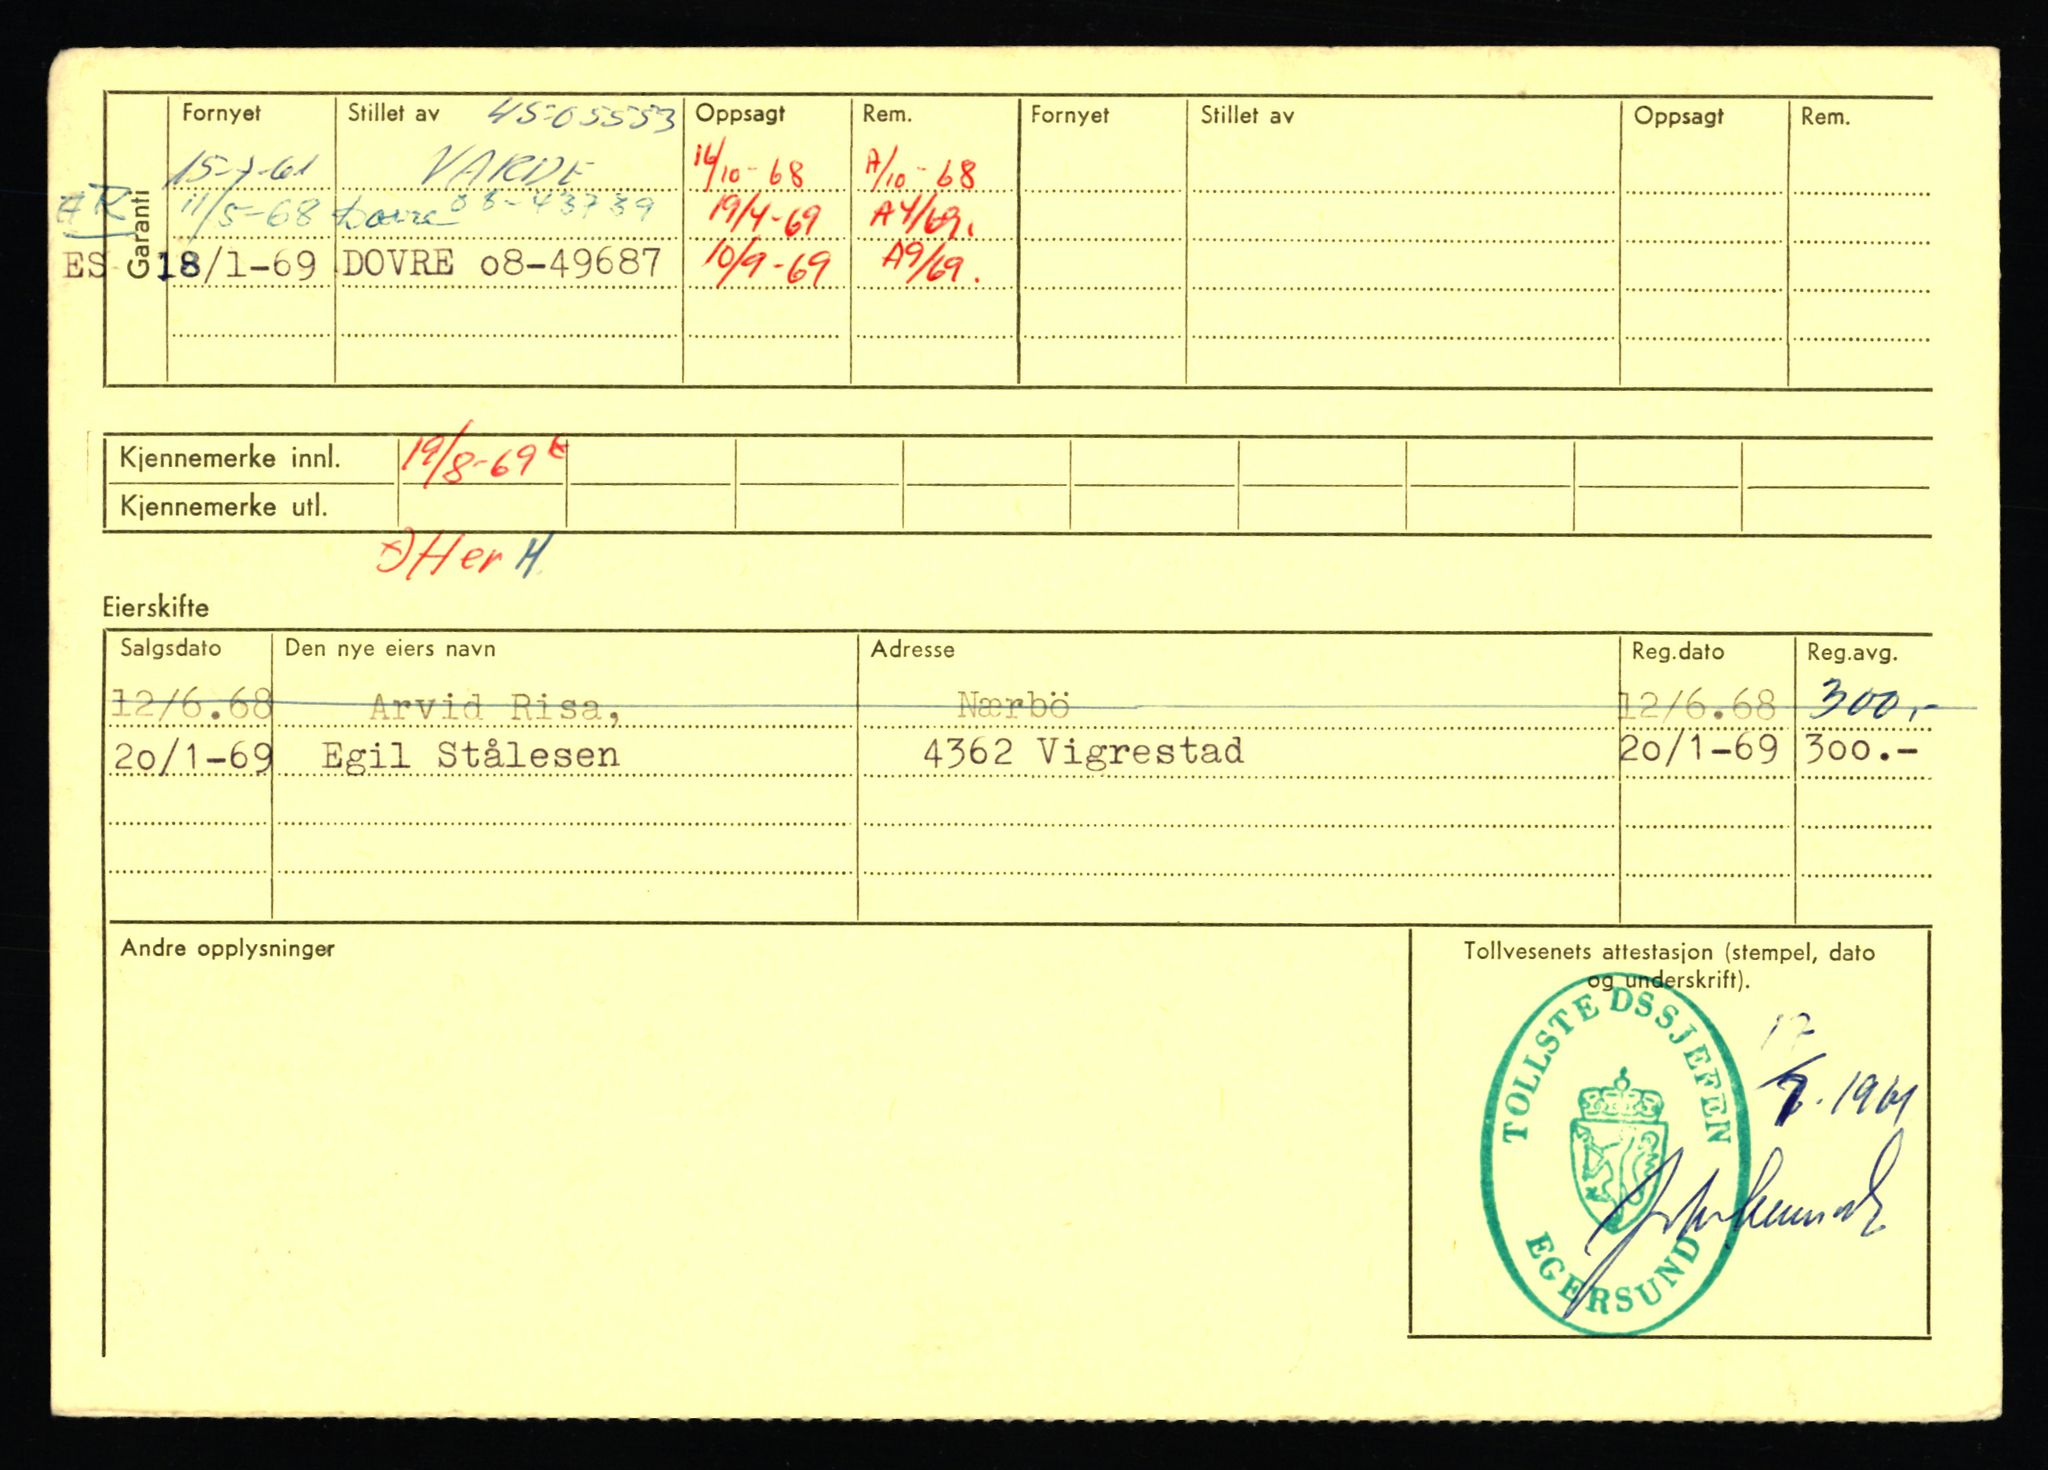 Fornyet Stillet av 45-05553 Oppsagt Rem. Fornyet Stillet av Oppsagt Rem.
Garanti
15-7-61 VARDE 14/10-68 A/10-68
AR 11/5-68 Dovre 08-43739 19/4-69 A4/69.
ES 18/1-69 DOVRE o8-49687 10/9-69 A9/69.
Kjennemerke innl. 19/8-69
Kjennemerke utl.
Her H.
Eierskifte
Salgsdato Den nye eiers navn Adresse Reg.dato Reg.avg.
12/6.68 Arvid Risa, Nærbö 12/6.68 300,-
20/1-69 Egil Stålesen 4362 Vigrestad 20/1-69 300.-
Andre opplysninger
Tollvesenets attestasjon (stempel, dato
og underskrift).
TOLLSTEDSSJEFEN
EGERSUND
17/7.1961